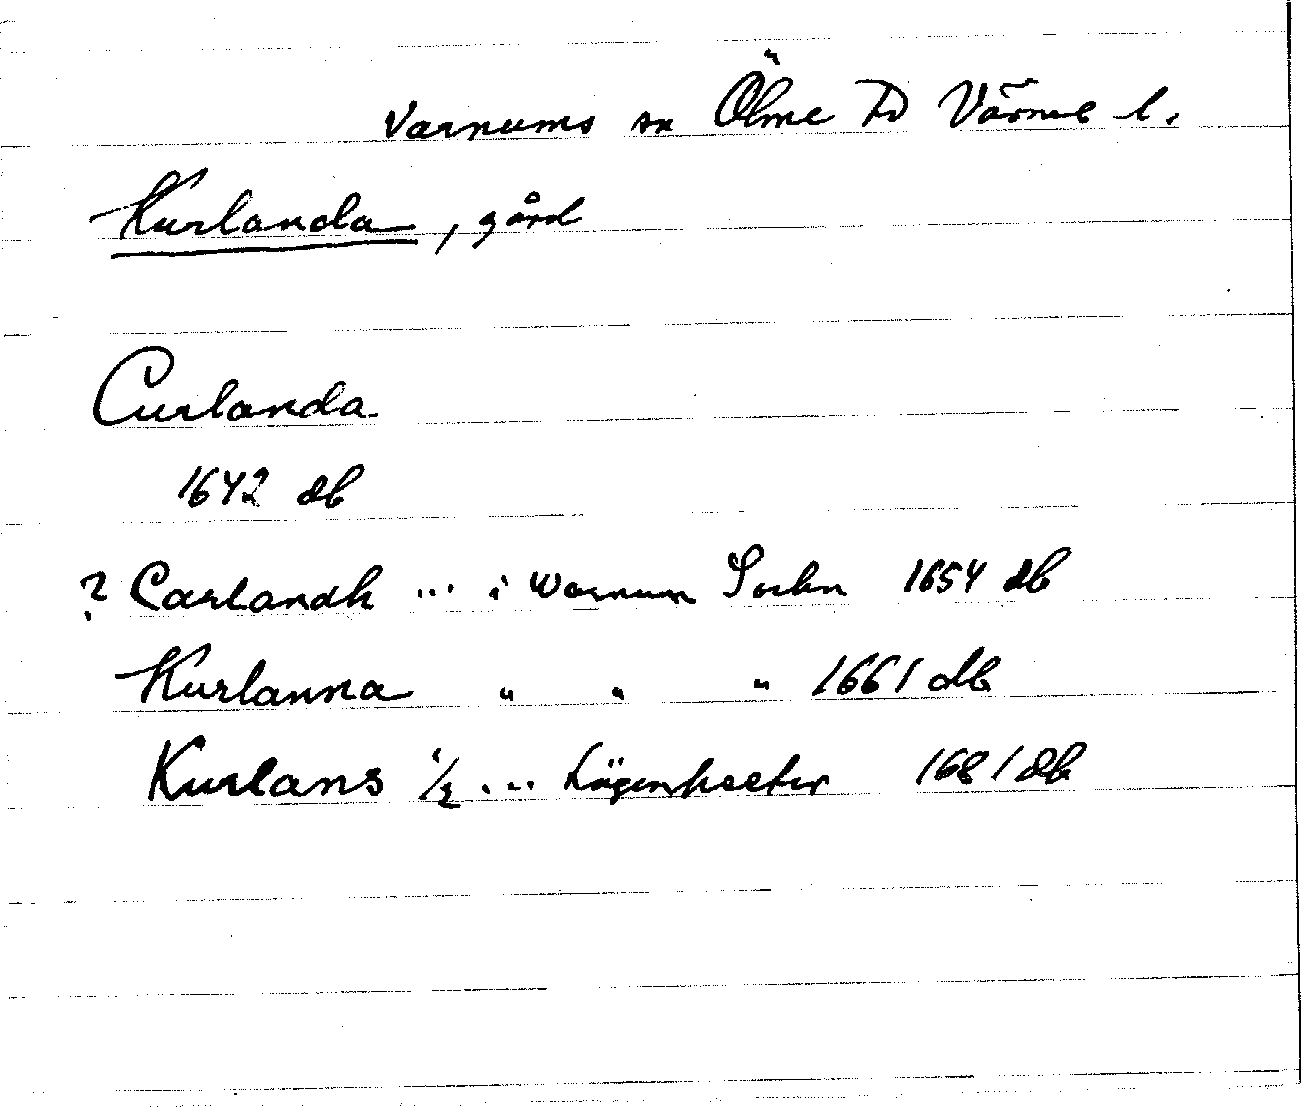 Varnums sn Ölme hd Värml l.
Kurlanda, gård
Curlanda
1642 db
? Carlandh ... i Warnum Sockn 1654 db
Kurlanna " " " 1661 db
Kurlans ½ ... Lägenheeter 1681 db